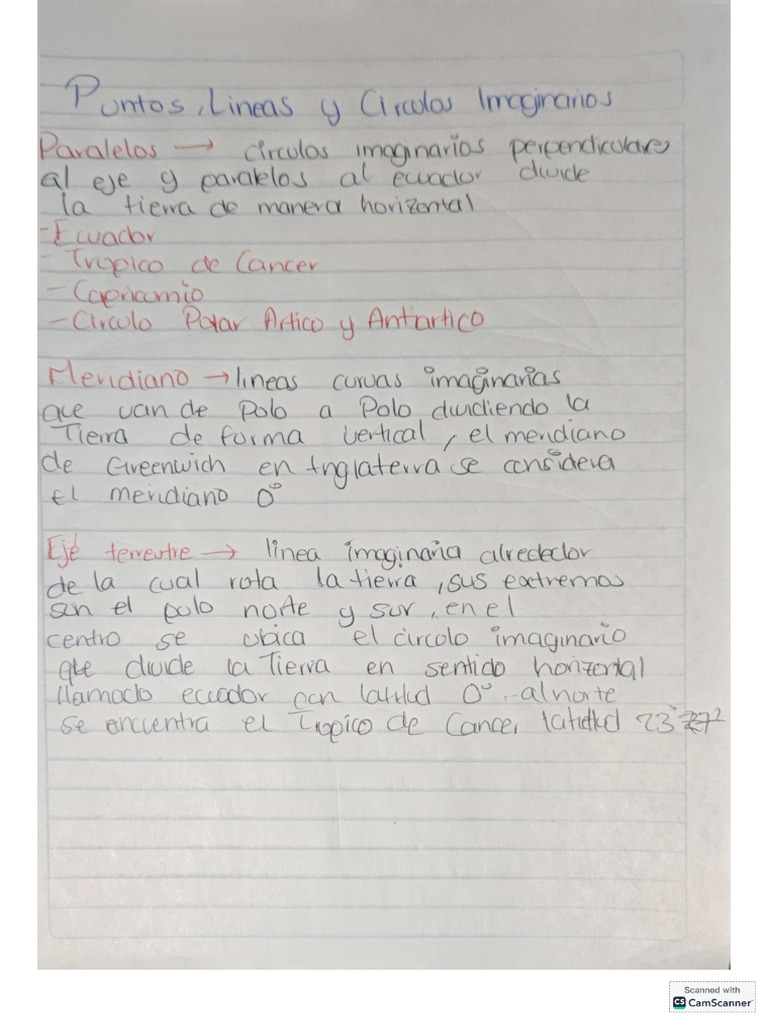 Puntos, Lineas y Circulos Imaginarios
Paralelos → circulos imaginarios perpendiculares
al eje y paralelos al ecuador divide
la tierra de manera horizontal
- Ecuador
- Tropico de Cancer
- Capricornio
- Circulo Polar Artico y Antartico
Meridiano → lineas curvas imaginarias
que van de Polo a Polo dividiendo la
Tierra de forma vertical, el meridiano
de Greenwich en Inglaterra se considera
El meridiano 0°
Eje terrestre → linea imaginaria alrededor
de la cual rota la tierra, sus extremos
son el polo norte y sur, en el
centro se ubica el circulo imaginario
que divide la Tierra en sentido horizontal
llamado ecuador con latitud 0°. al norte
se encuentra el Tropico de Cancer latitud 23°
Scanned with
CS CamScanner